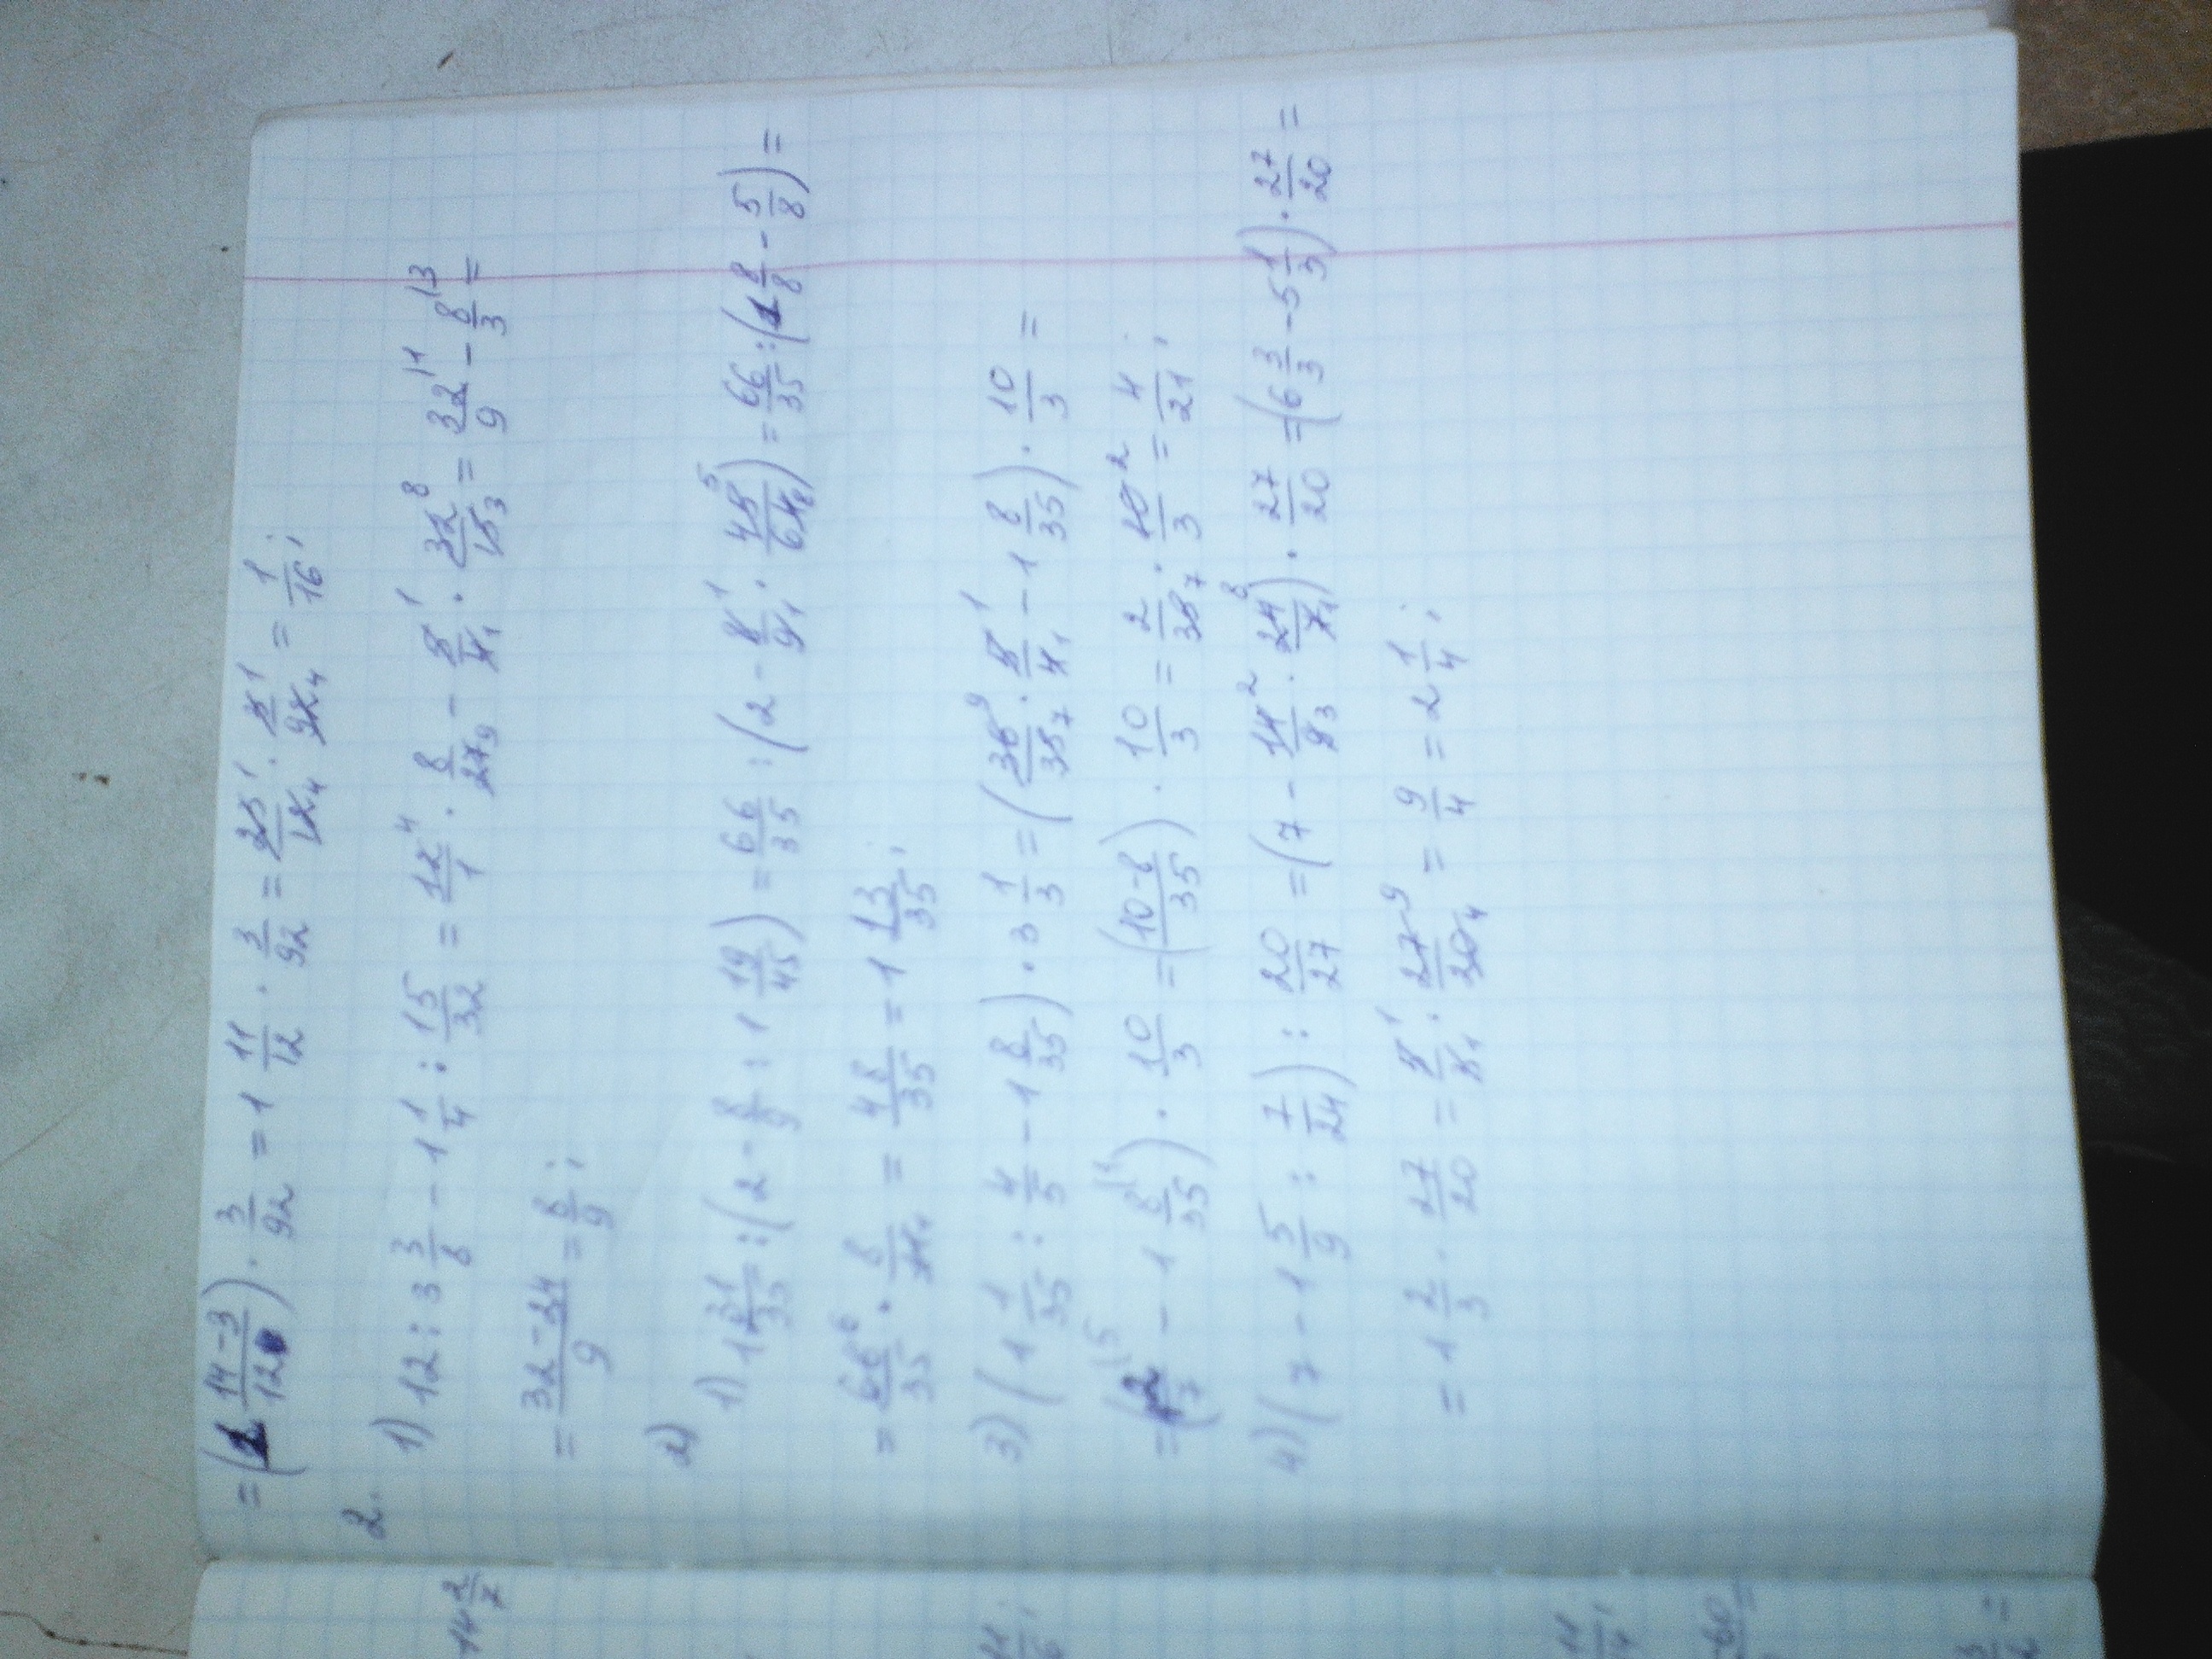 = (1 14-3/12) · 3/92 = 1 11/12 · 3/92 = 23¹/12₄ · 3¹/92₄ = 1/16;
2.
1) 12 : 3 3/8 - 1 1/4 : 15/32 = 12⁴/1 · 8/27₉ - 5¹/4₁ · 32⁸/15₃ = 32¹¹/9 - 8¹³/3 =
= 32-24/9 = 8/9;
2)
1) 1 31/35 : (2 - 8/9 : 1 19/45) = 66/35 : (2 - 8¹/9₁ · 45⁵/64₈) = 66/35 : (1 8/8 - 5/8) =
= 66⁶/35 · 8/11₁ = 48/35 = 1 13/35;
3) (1 1/35 : 4/5 - 1 8/35) · 3 1/3 = (36⁹/35₇ · 5¹/4₁ - 1 8/35) · 10/3 =
= (2/7 - 1 8/35) · 10/3 = (10-8/35) · 10/3 = 2/35₇ · 10²/3 = 4/21;
4) (7 - 1 5/9 : 7/24) : 20/27 = (7 - 14²/9₃ · 24⁸/7₁) · 27/20 = (6 3/3 - 5 1/3) · 27/20 =
= 1 2/3 · 27/20 = 5¹/3₁ · 27⁹/20₄ = 9/4 = 2 1/4;
14 2/7